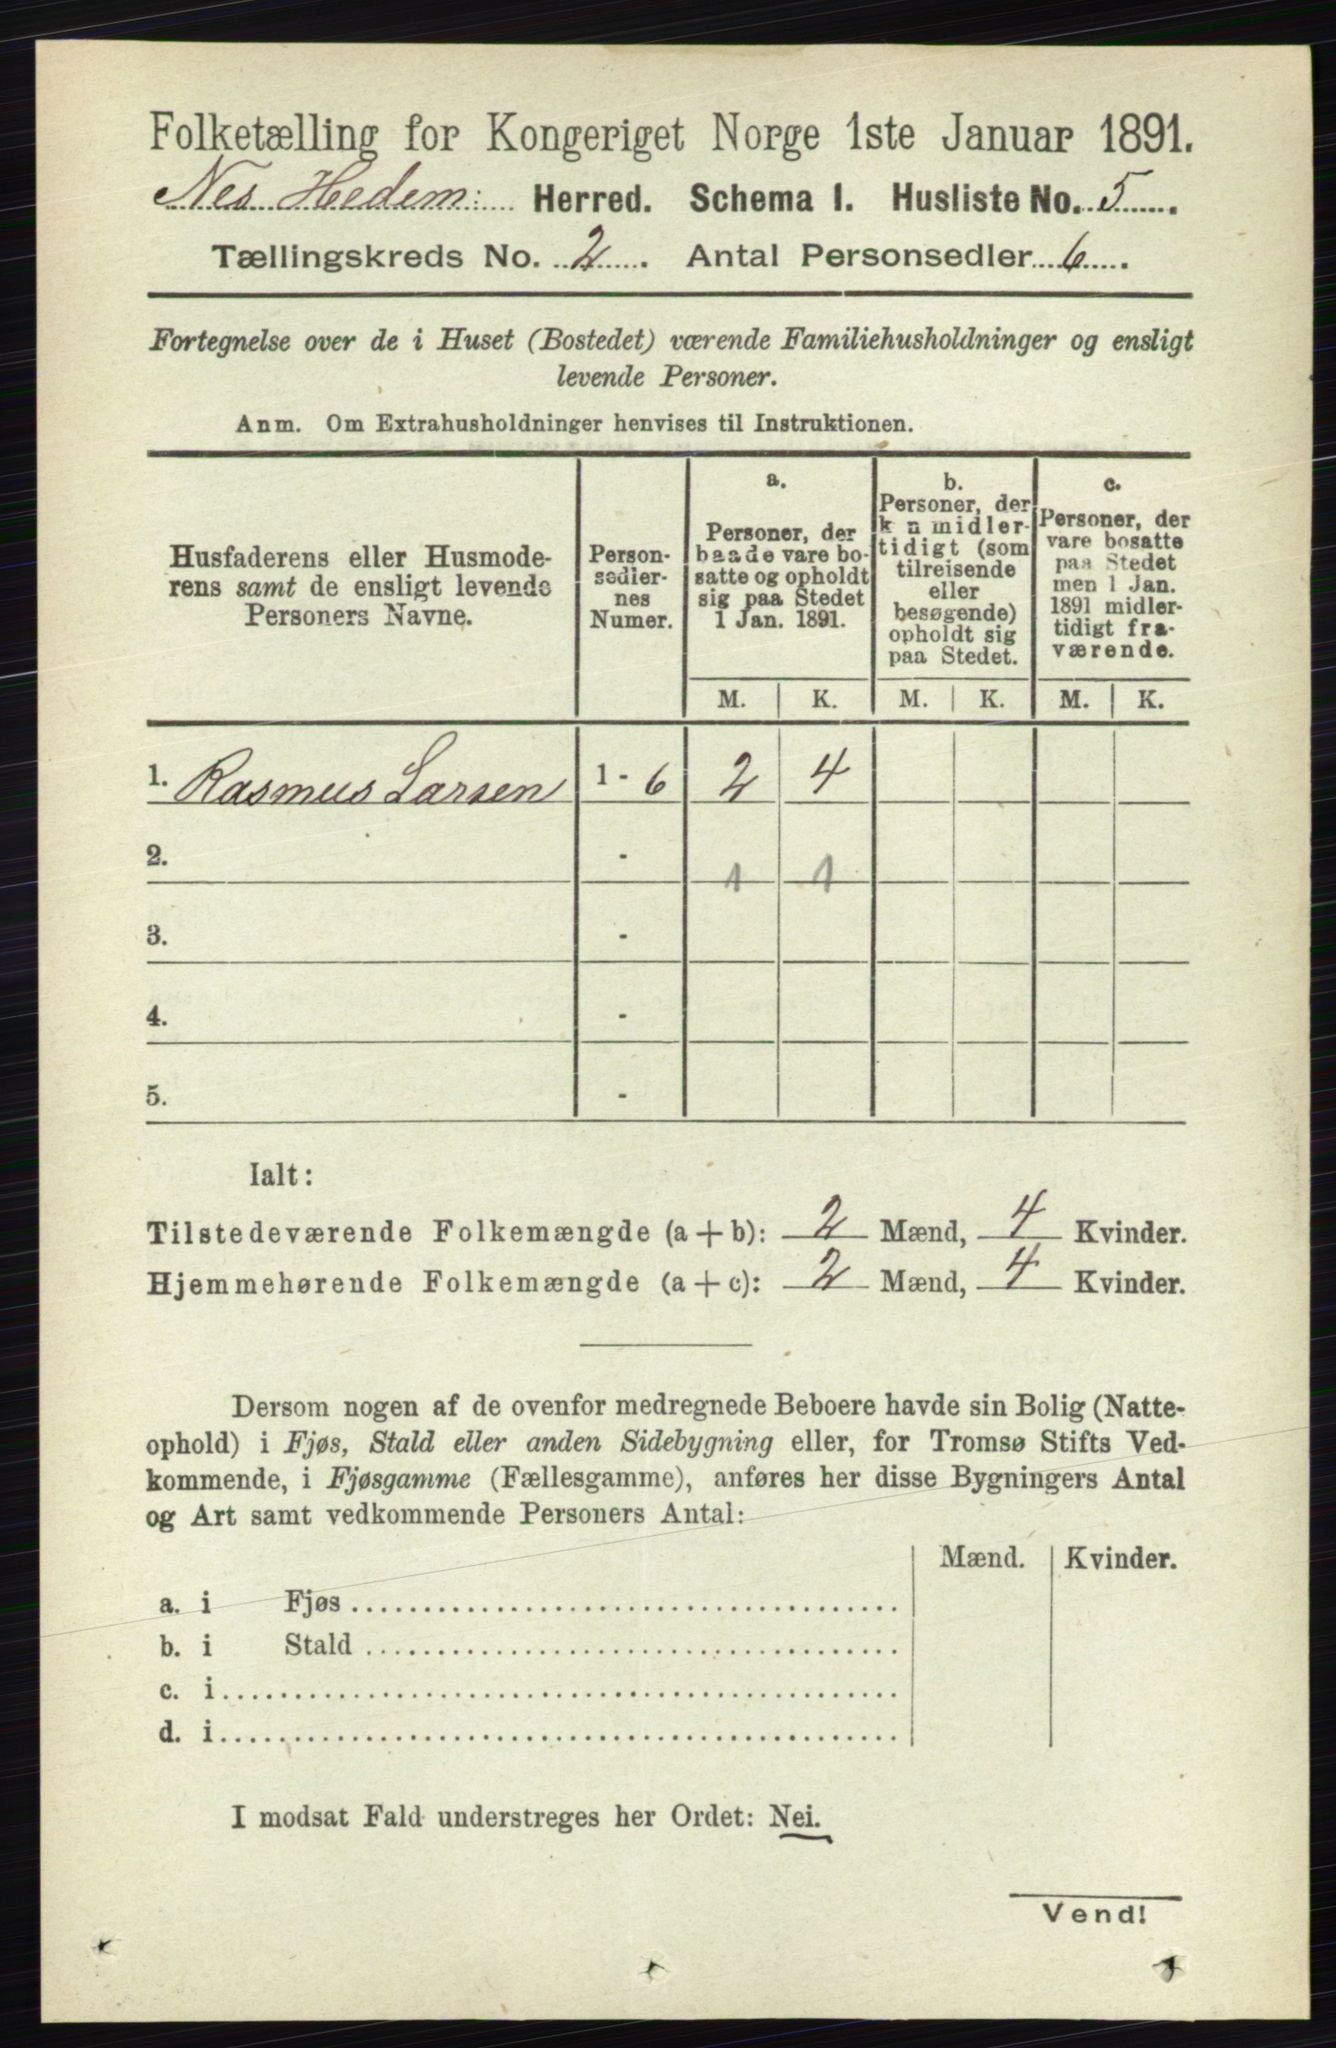 Folketælling for Kongeriget Norge 1ste Januar 1891.
Nes Hedem: Herred. Schema I. Husliste No. 5.
Tællingskreds No. 2. Antal Personsedler 6.
Fortegnelse over de i Huset (Bostedet) værende Familiehusholdninger og ensligt
levende Personer.
Anm. Om Extrahusholdninger henvises til Instruktionen.
Husfaderens eller Husmode-
rens samt de ensligt levende
Personers Navne.
Person-
sedler-
nes
Numer.
a.
Personer, der
baade vare bo-
satte og opholdt
sig paa Stedet
1 Jan. 1891.
b.
Personer, der
kun midler-
tidigt (som
tilreisende
eller
besøgende)
opholdt sig
paa Stedet.
c.
Personer, der
vare bosatte
paa Stedet
men 1 Jan.
1891 midler-
tidigt fra-
værende.
M. K. M. K. M. K.
1. Rasmus Larsen 1 - 6 2 4
2. - 1 1
3. -
4. -
5. -
Ialt:
Tilstedeværende Folkemængde (a + b): 2 Mænd, 4 Kvinder.
Hjemmehørende Folkemængde (a + c): 2 Mænd, 4 Kvinder.
Dersom nogen af de ovenfor medregnede Beboere havde sin Bolig (Natte-
ophold) i Fjøs, Stald eller anden Sidebygning eller, for Tromsø Stifts Ved-
kommende, i Fjøsgamme (Fællesgamme), anføres her disse Bygningers Antal
og Art samt vedkommende Personers Antal:
Mænd. Kvinder.
a. i Fjøs
b. i Stald
c. i
d. i
I modsat Fald understreges her Ordet: Nei.
Vend!